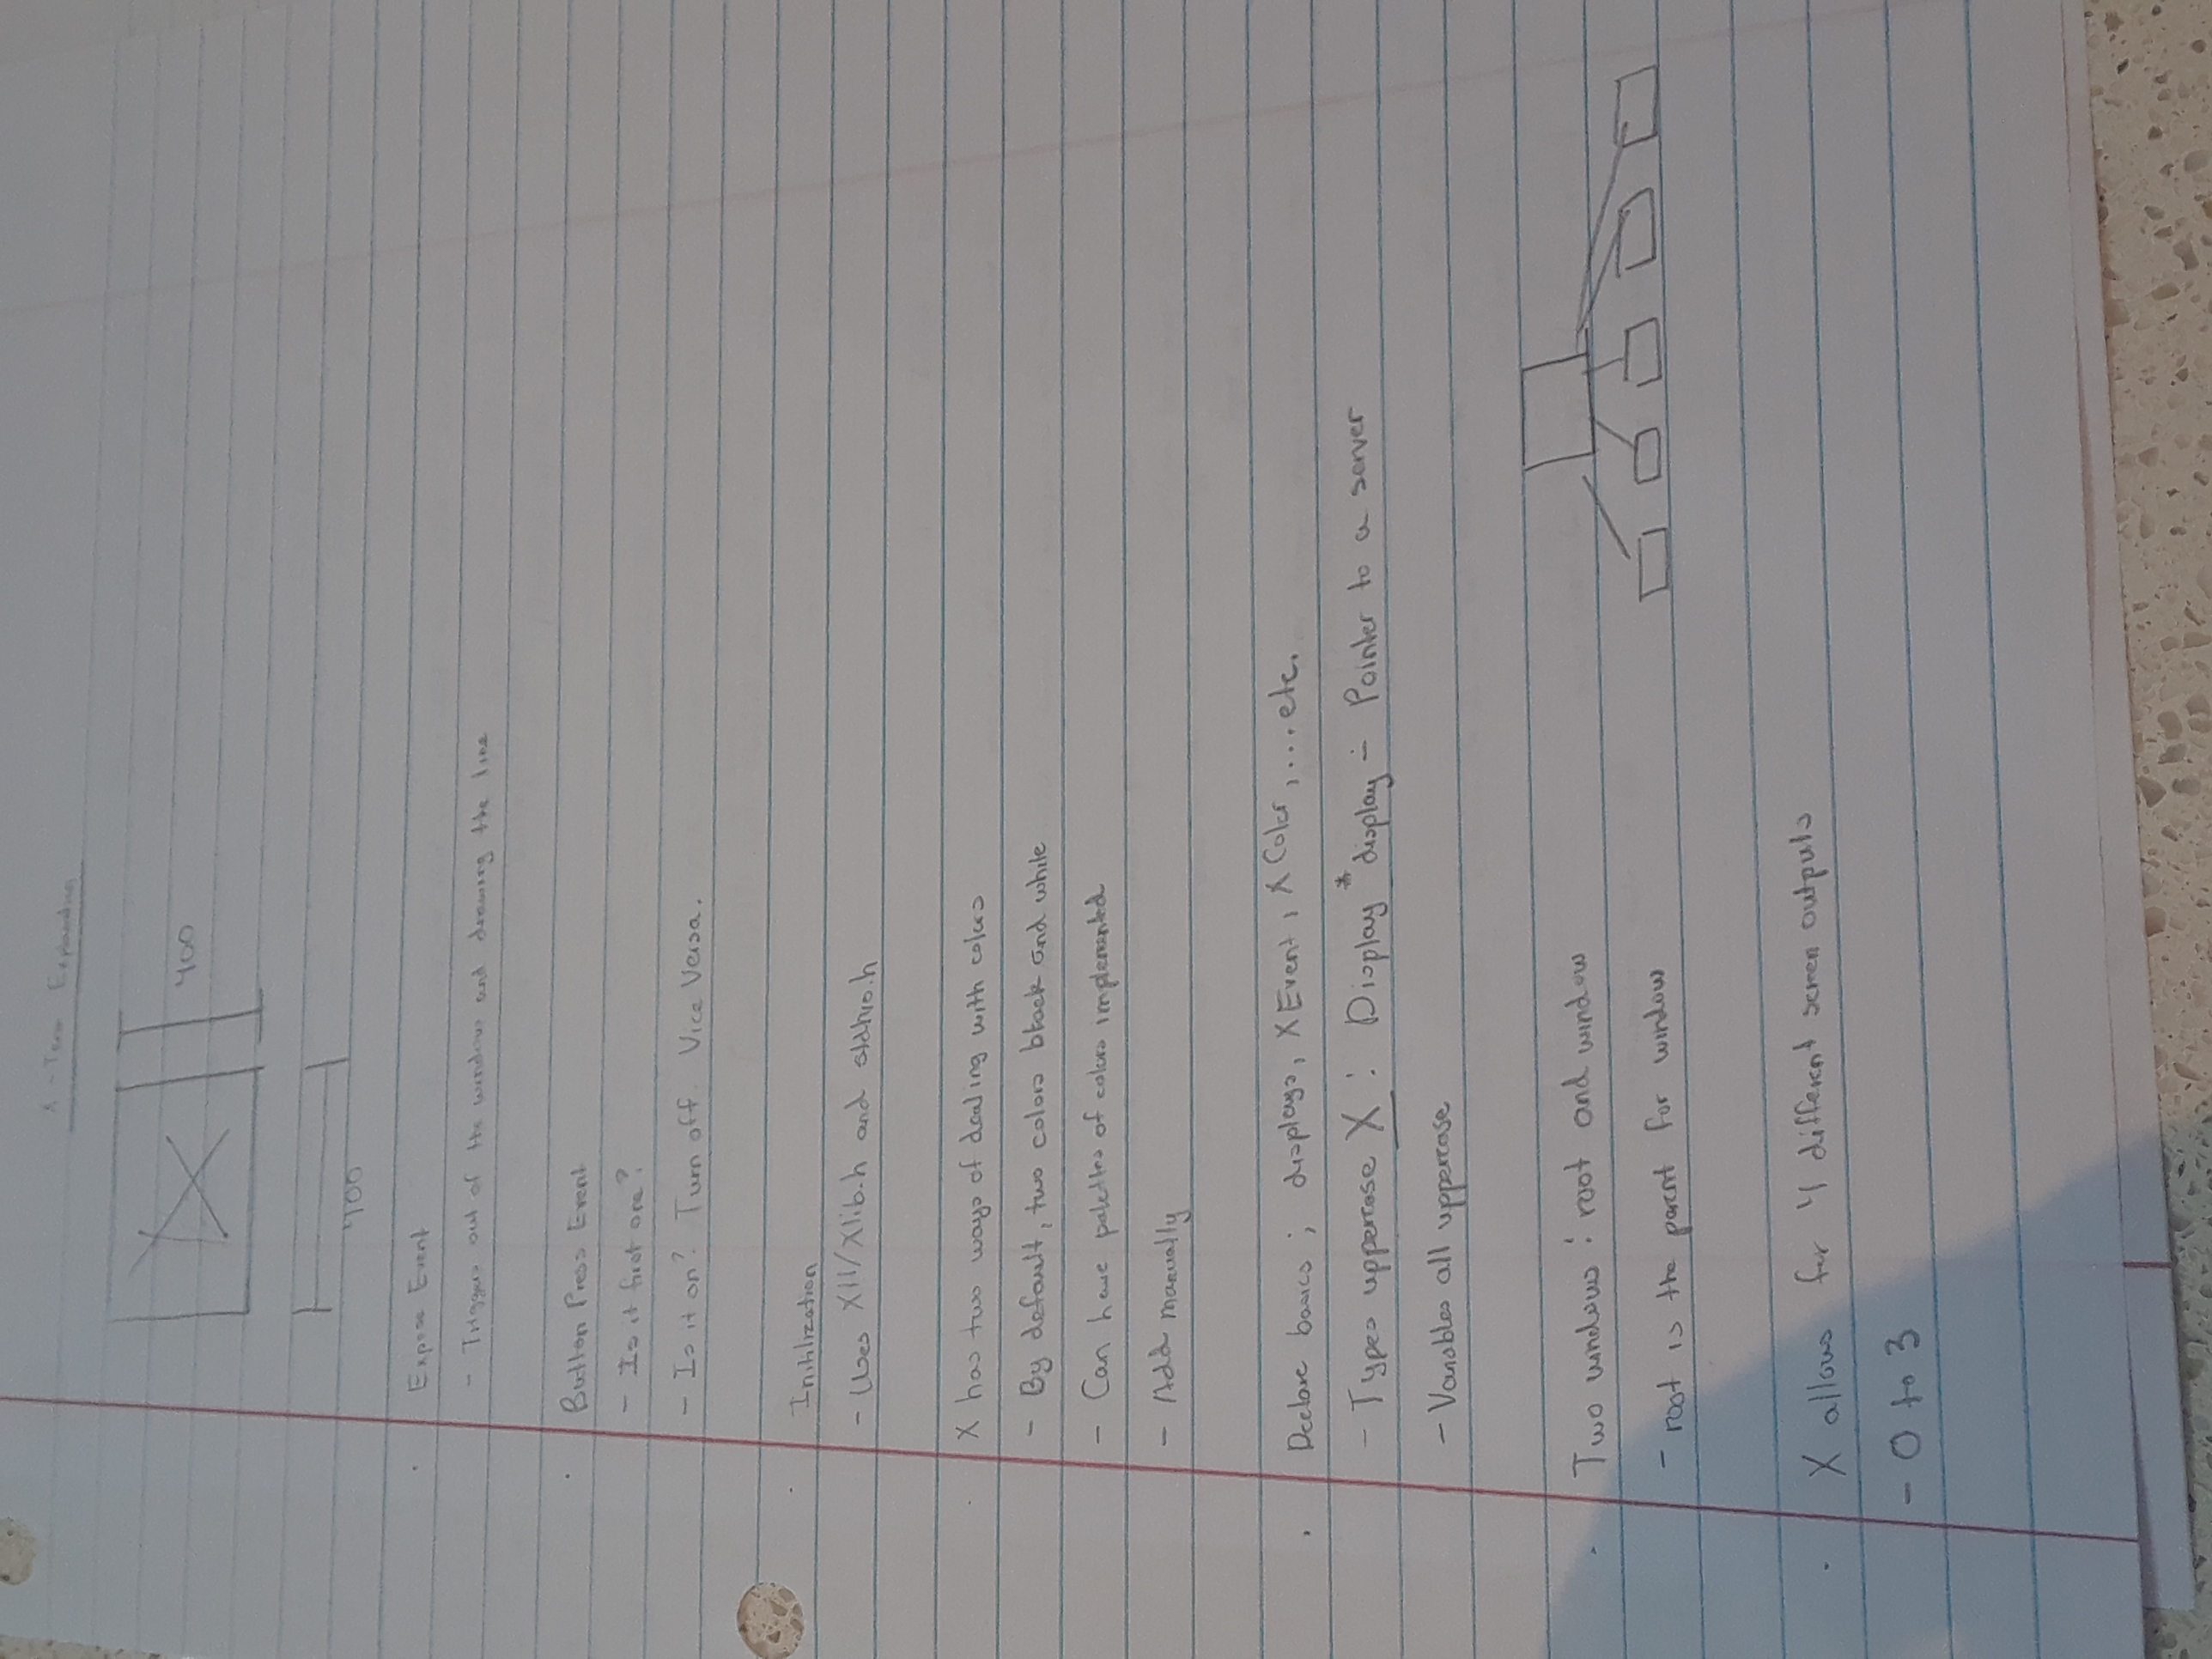 X - Term Explanation
400
400
Expose Event
- Triggers out of the window and drawing the line
Button Press Event
- Is it first one?
- Is it on? Turn off. Vice Versa.
Initilization
- Uses X11/Xlib.h and stdhio.h
X has two ways of dealing with colors
- By default, two colors black and white
- Can have palettes of colors implemented
- Add manually
Declare basics ; displays, XEvent, XColor, ...etc.
- Types uppercase X : Display *display - Pointer to a server
- Variables all uppercase
Two windows : root and window
- root is the parent for window
X allows for 4 different screen outputs
- 0 to 3